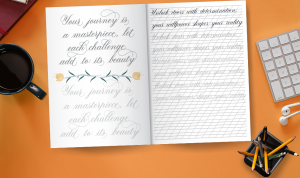 Your journey is
a masterpiece, let
each challenge
add to its beauty
Your journey is
a masterpiece, let
each challenge
add to its beauty
Unlock doors with determination;
your willpower shapes your reality
Unlock doors with determination;
your willpower shapes your reality